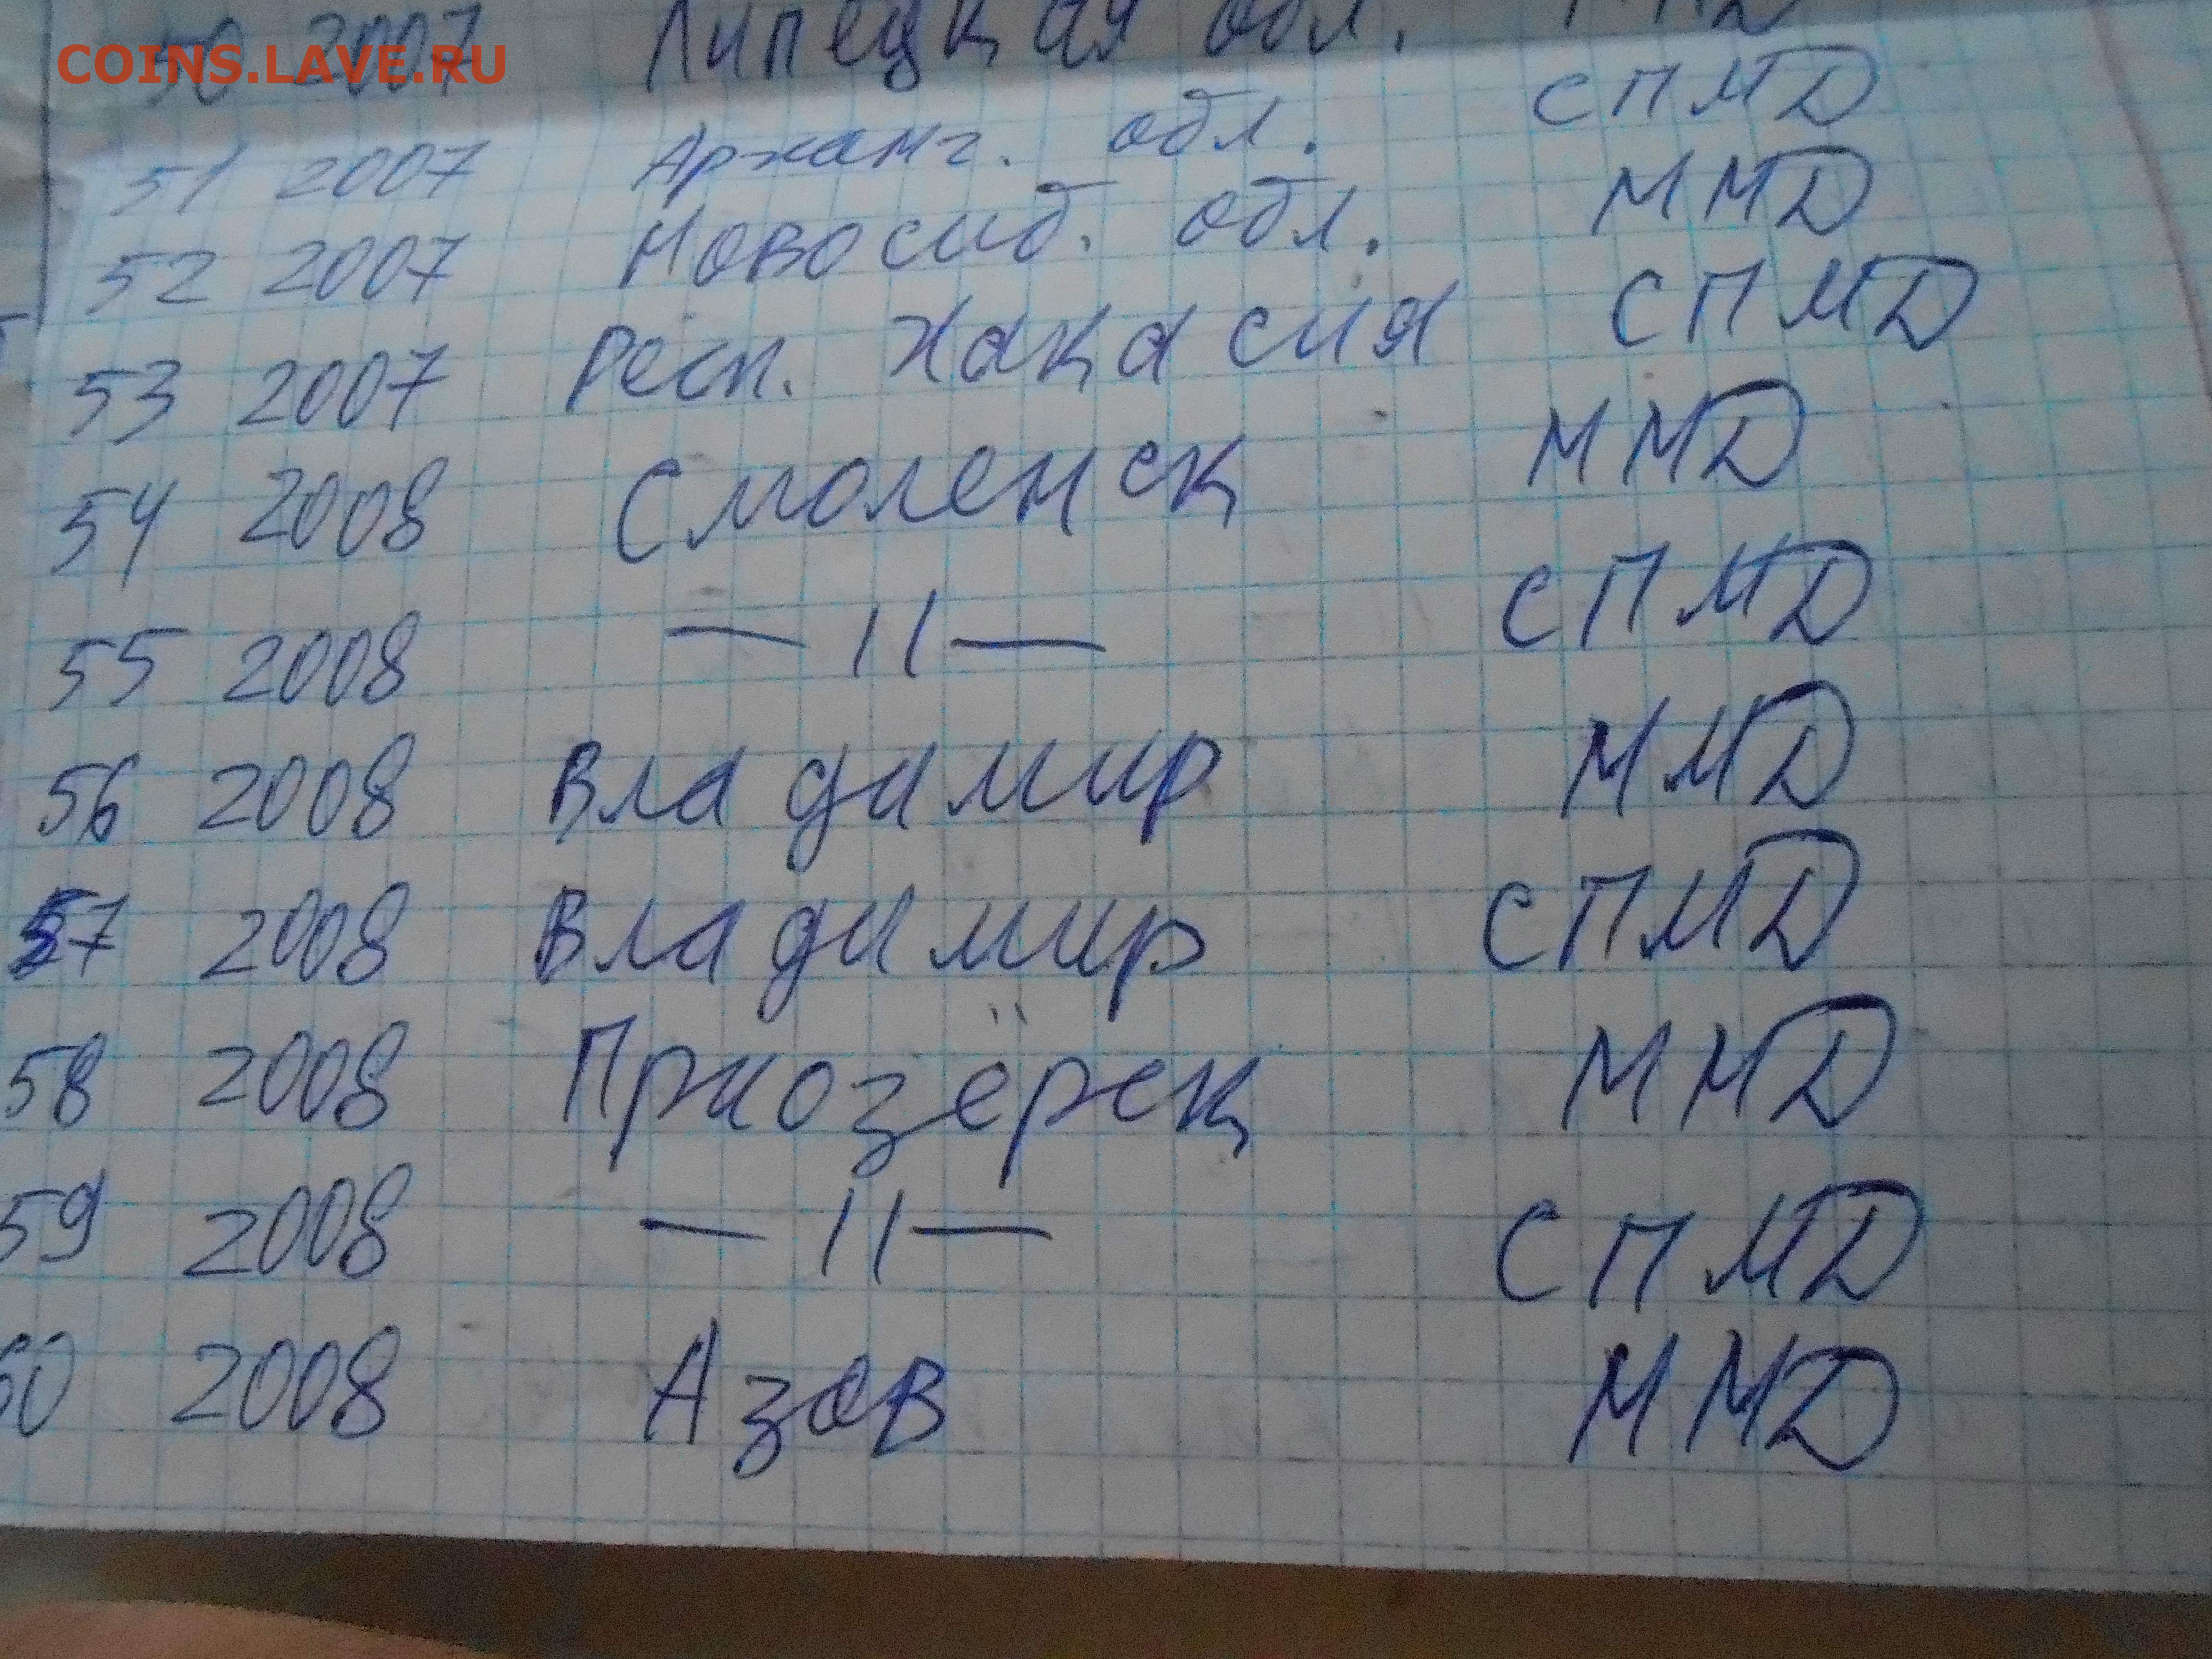 COINS.LAVE.RU
50 2007 Липецкая обл. ММД
51 2007 Арханг. обл. СПМД
52 2007 Новосиб. обл. ММД
53 2007 Респ. Хакасия СПМД
54 2008 Смоленск ММД
55 2008 —||— СПМД
56 2008 Владимир ММД
57 2008 Владимир СПМД
58 2008 Приозёрск ММД
59 2008 —||— СПМД
60 2008 Азов ММД